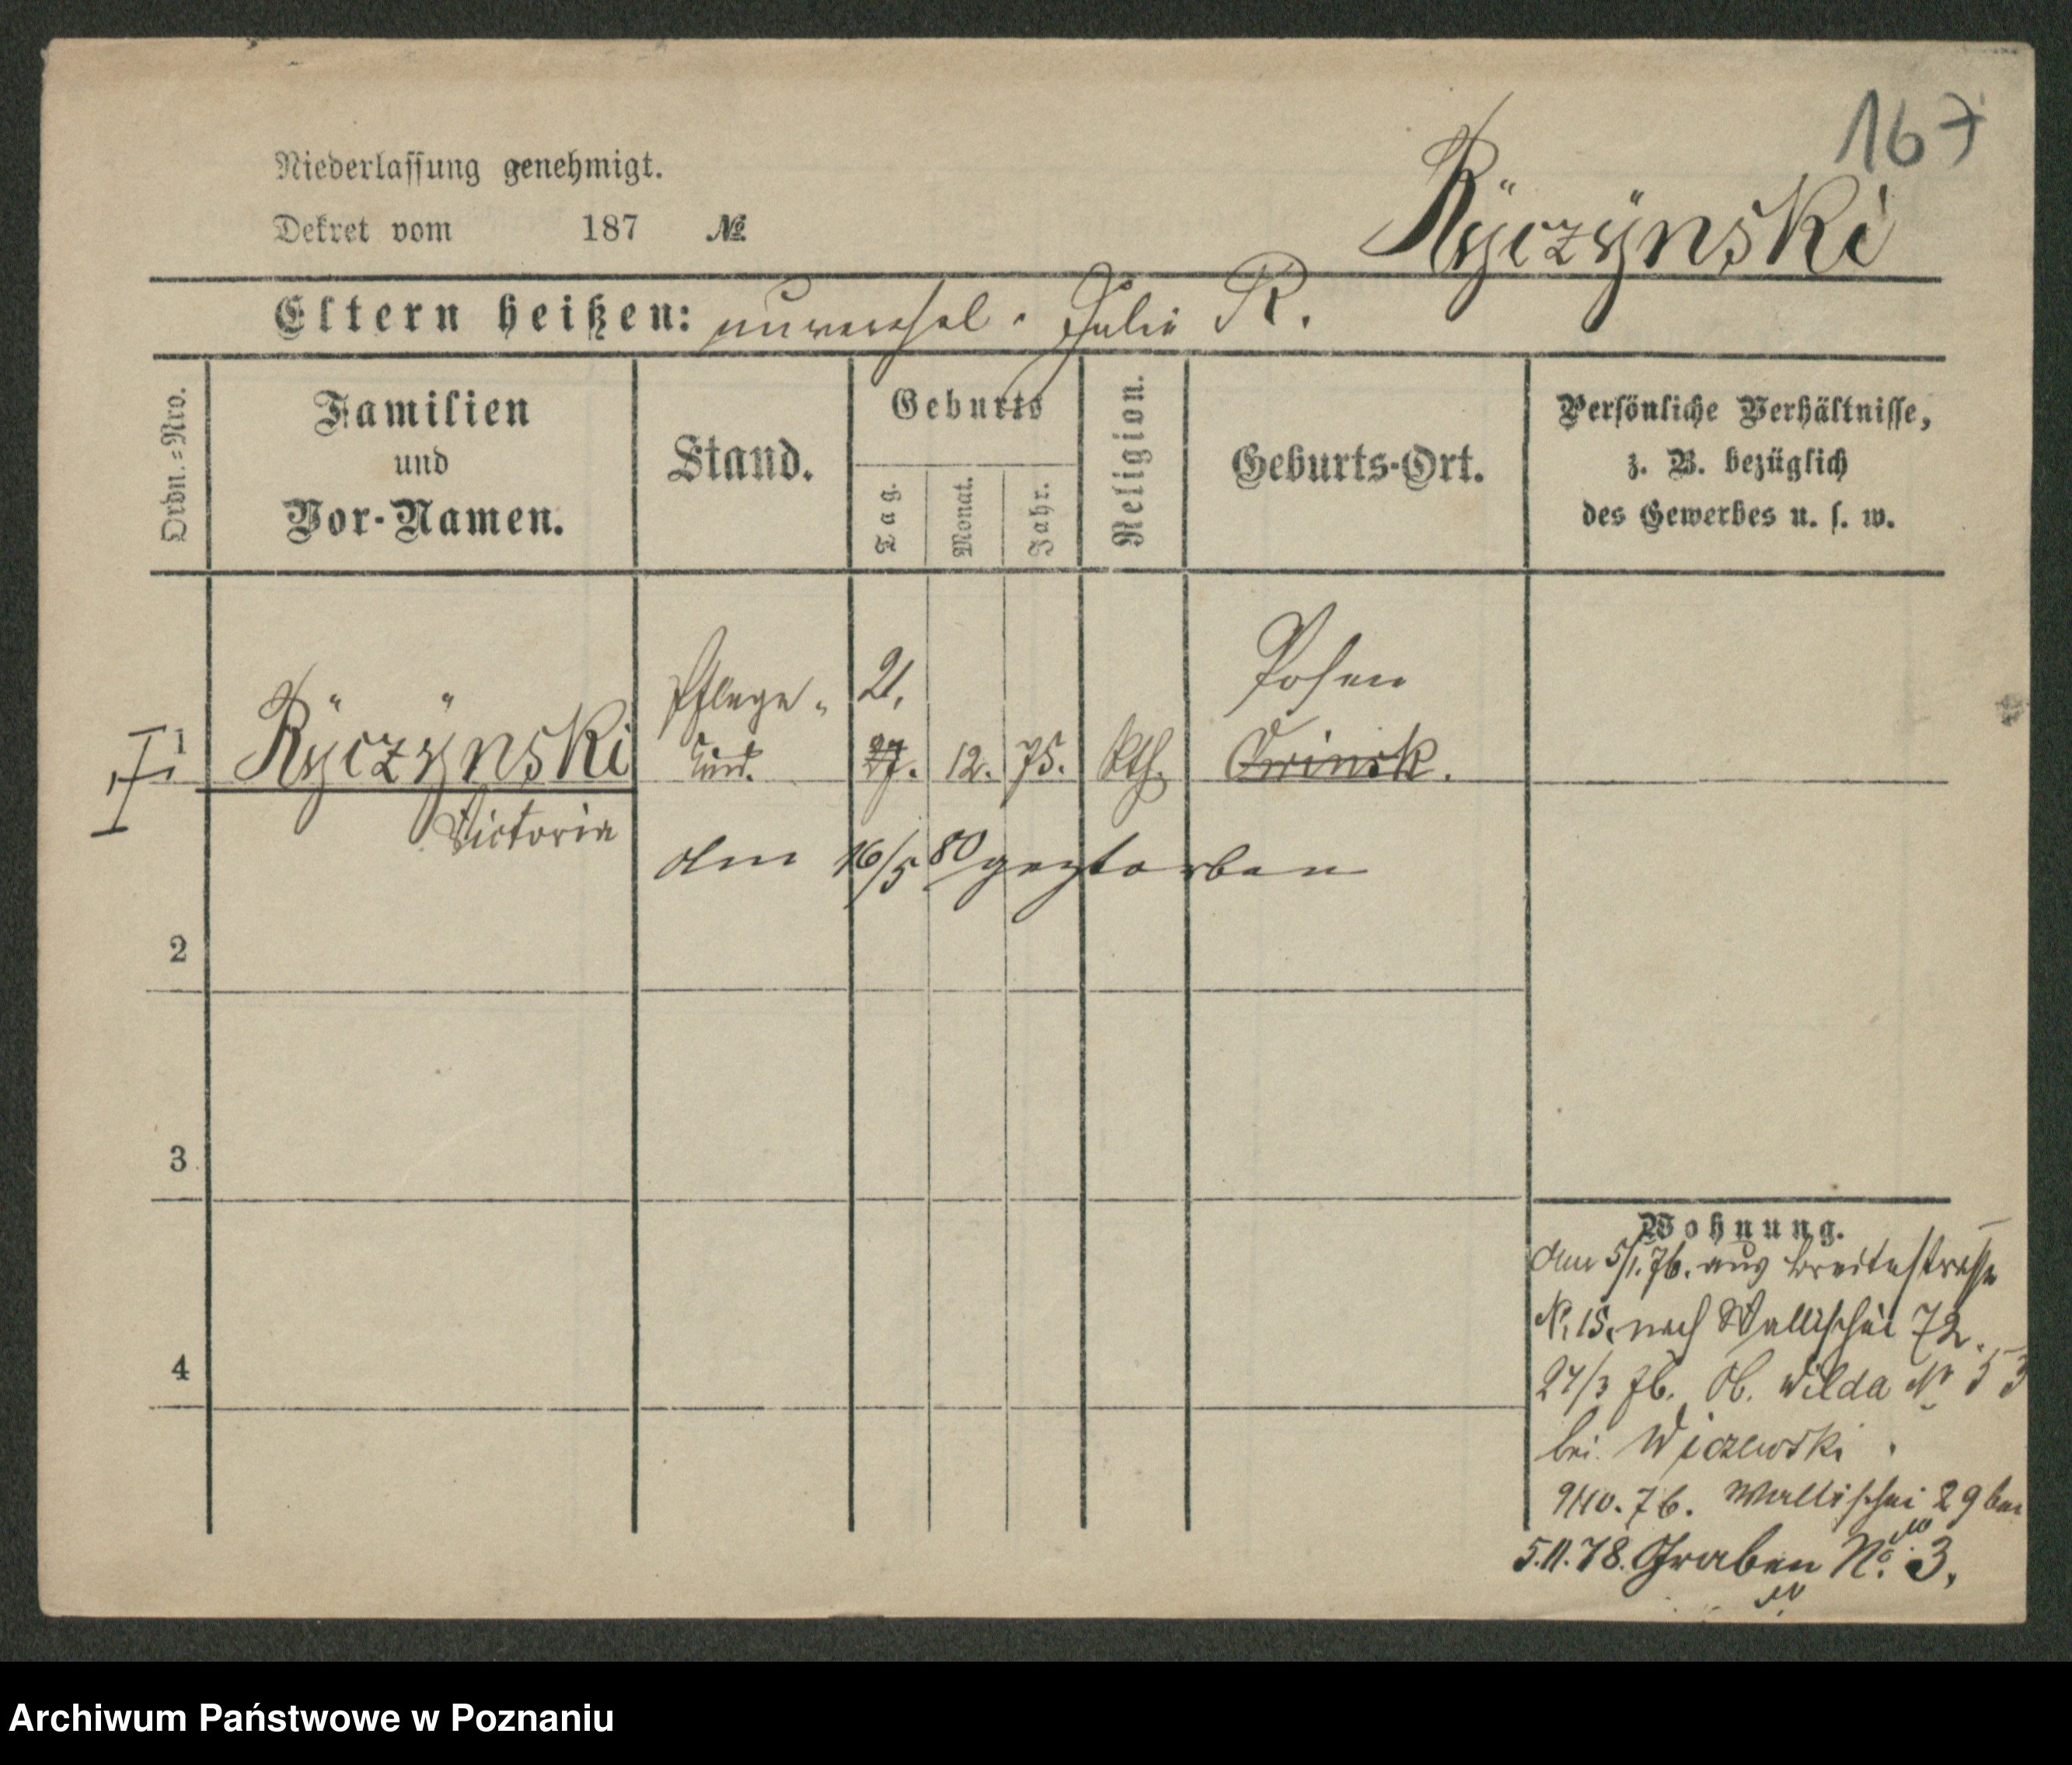 167
Niederlassung genehmigt.
Ryczynski
Dekret vom 187 №
Eltern heißen: unverehel. Julie R.
Ordn.=Nro.
Familien
und
Vor-Namen.
Stand.
Geburts
Tag.
Monat.
Jahr.
Religion.
Geburts-Ort.
Persönliche Verhältnisse,
z. B. bezüglich
des Gewerbes u. s. w.
Pflege- 21. Posen
1 Ryczynski kind. 27. 12. 75. kth.
Victoria
Am 16/5 80 gestorben
2
3
4
Wohnung.
Am 5/1. 76. aus Breitestrasse
N. 15. nach Wallischei 72.
27/3 76. Ob. Wilda № 53
bei
9/10. 76. Wallischei 29 bei
5.11.78. Graben No. 3.
Archiwum Państwowe w Poznaniu